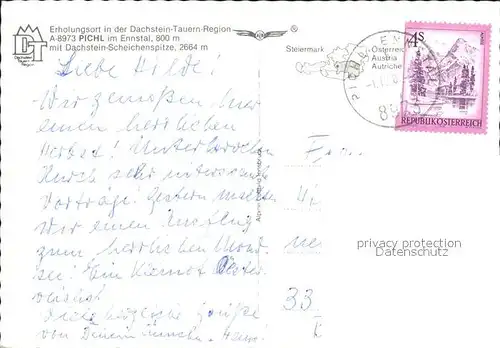 Erholungsort in der Dachstein-Tauern-Region
A-8973 PICHL im Ennstal, 800 m
mit Dachstein-Scheichenspitze, 2664 m
DT
Dachstein
Tauern
Region
Steiermark
Österreich
Austria
Autriche
4s
REPUBLIK ÖSTERREICH
Liebe Hilde!
Wir genießen hier
einen herrlichen
Herbst! Unterbrochen
durch sehr interessante
Vorträge. Gestern machten
wir einen Ausflug
zum herrlichen Mond
see! Ein Kleinod Öster
reichs!
Viele herzliche Grüße
von Deinem
Fra
33
privacy protection
Datenschutz